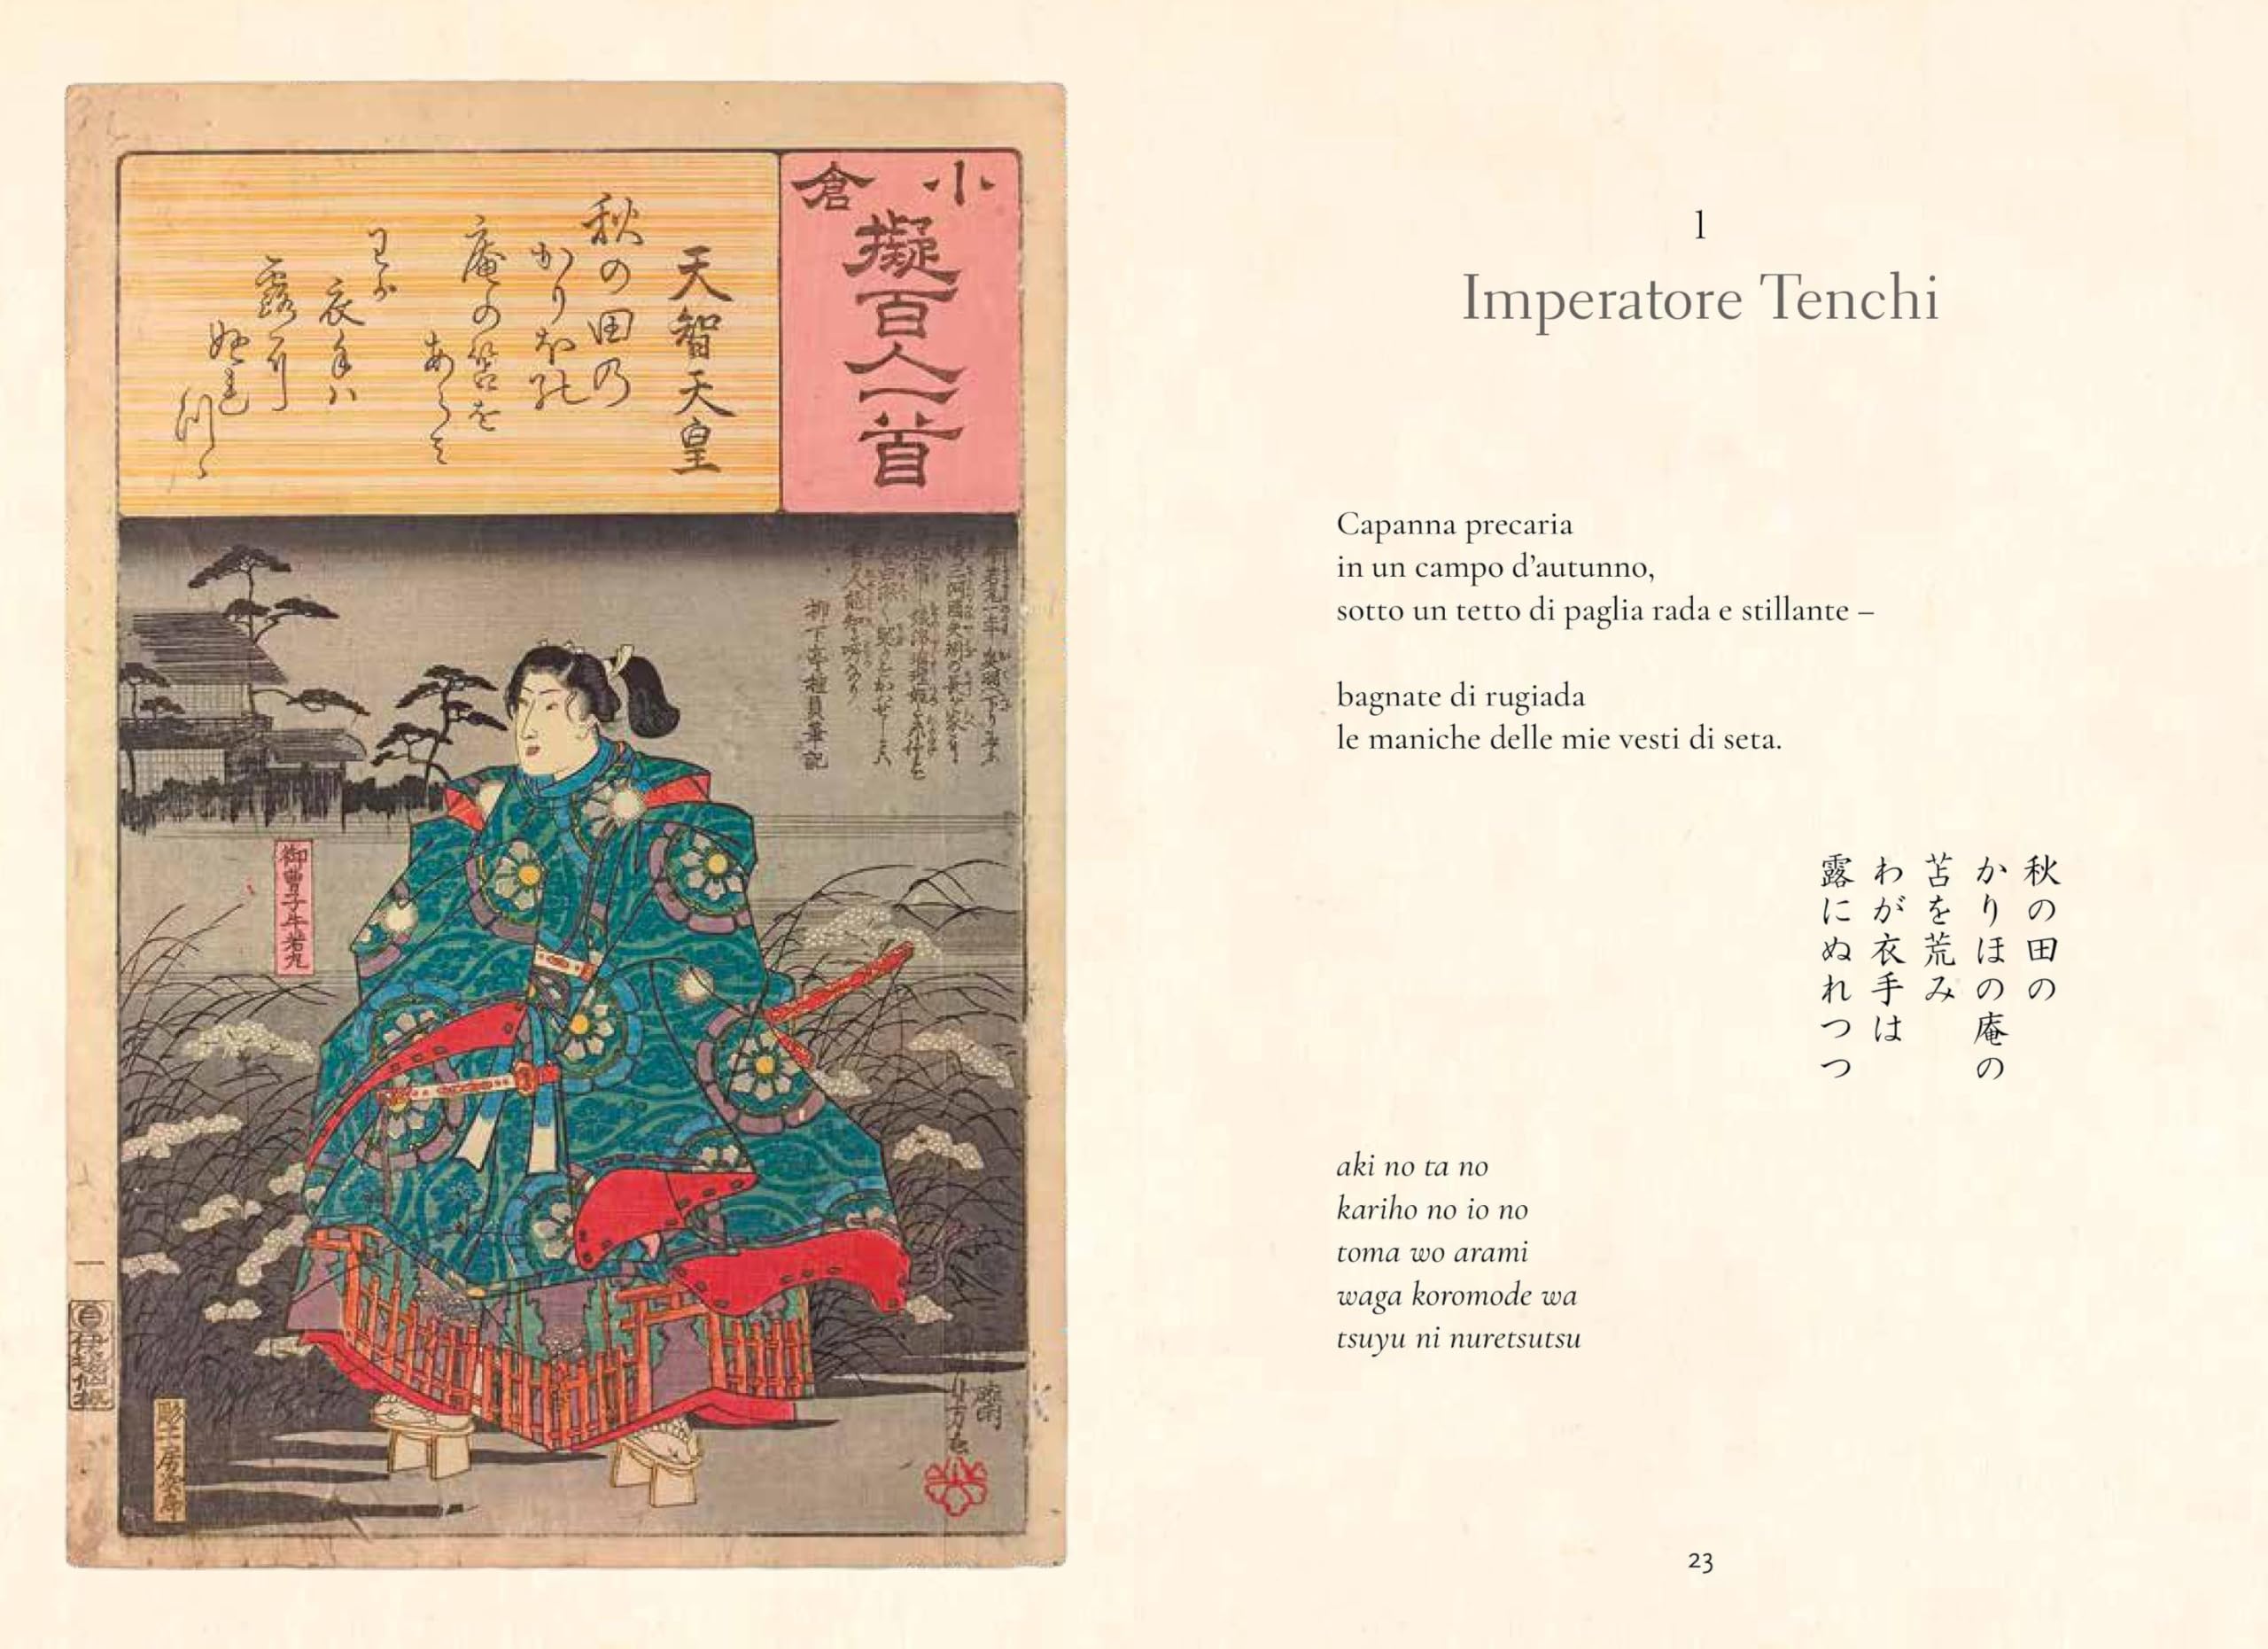 小倉
擬百人一首
天智天皇
秋の田乃
かりほの
庵の苫を
あらみ
わが
衣手ハ
露に
ぬれ
つゝ
柳下亭種員筆記
御曹子牛若丸
一
1
Imperatore Tenchi
Capanna precaria
in un campo d’autunno,
sotto un tetto di paglia rada e stillante –
bagnate di rugiada
le maniche delle mie vesti di seta.
秋の田の
かりほの庵の
苫を荒み
わが衣手は
露にぬれつつ
aki no ta no
kariho no io no
toma wo arami
waga koromode wa
tsuyu ni nuretsutsu
23